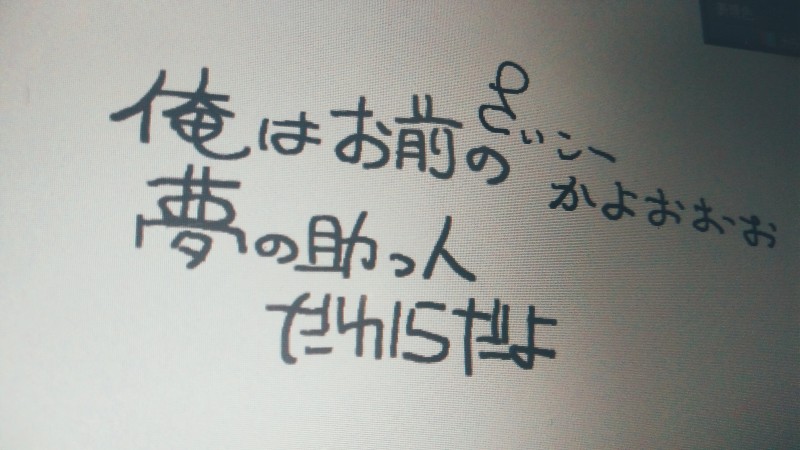 俺はお前の
夢の助っ人
だからだよ
さいこー
かよおおお